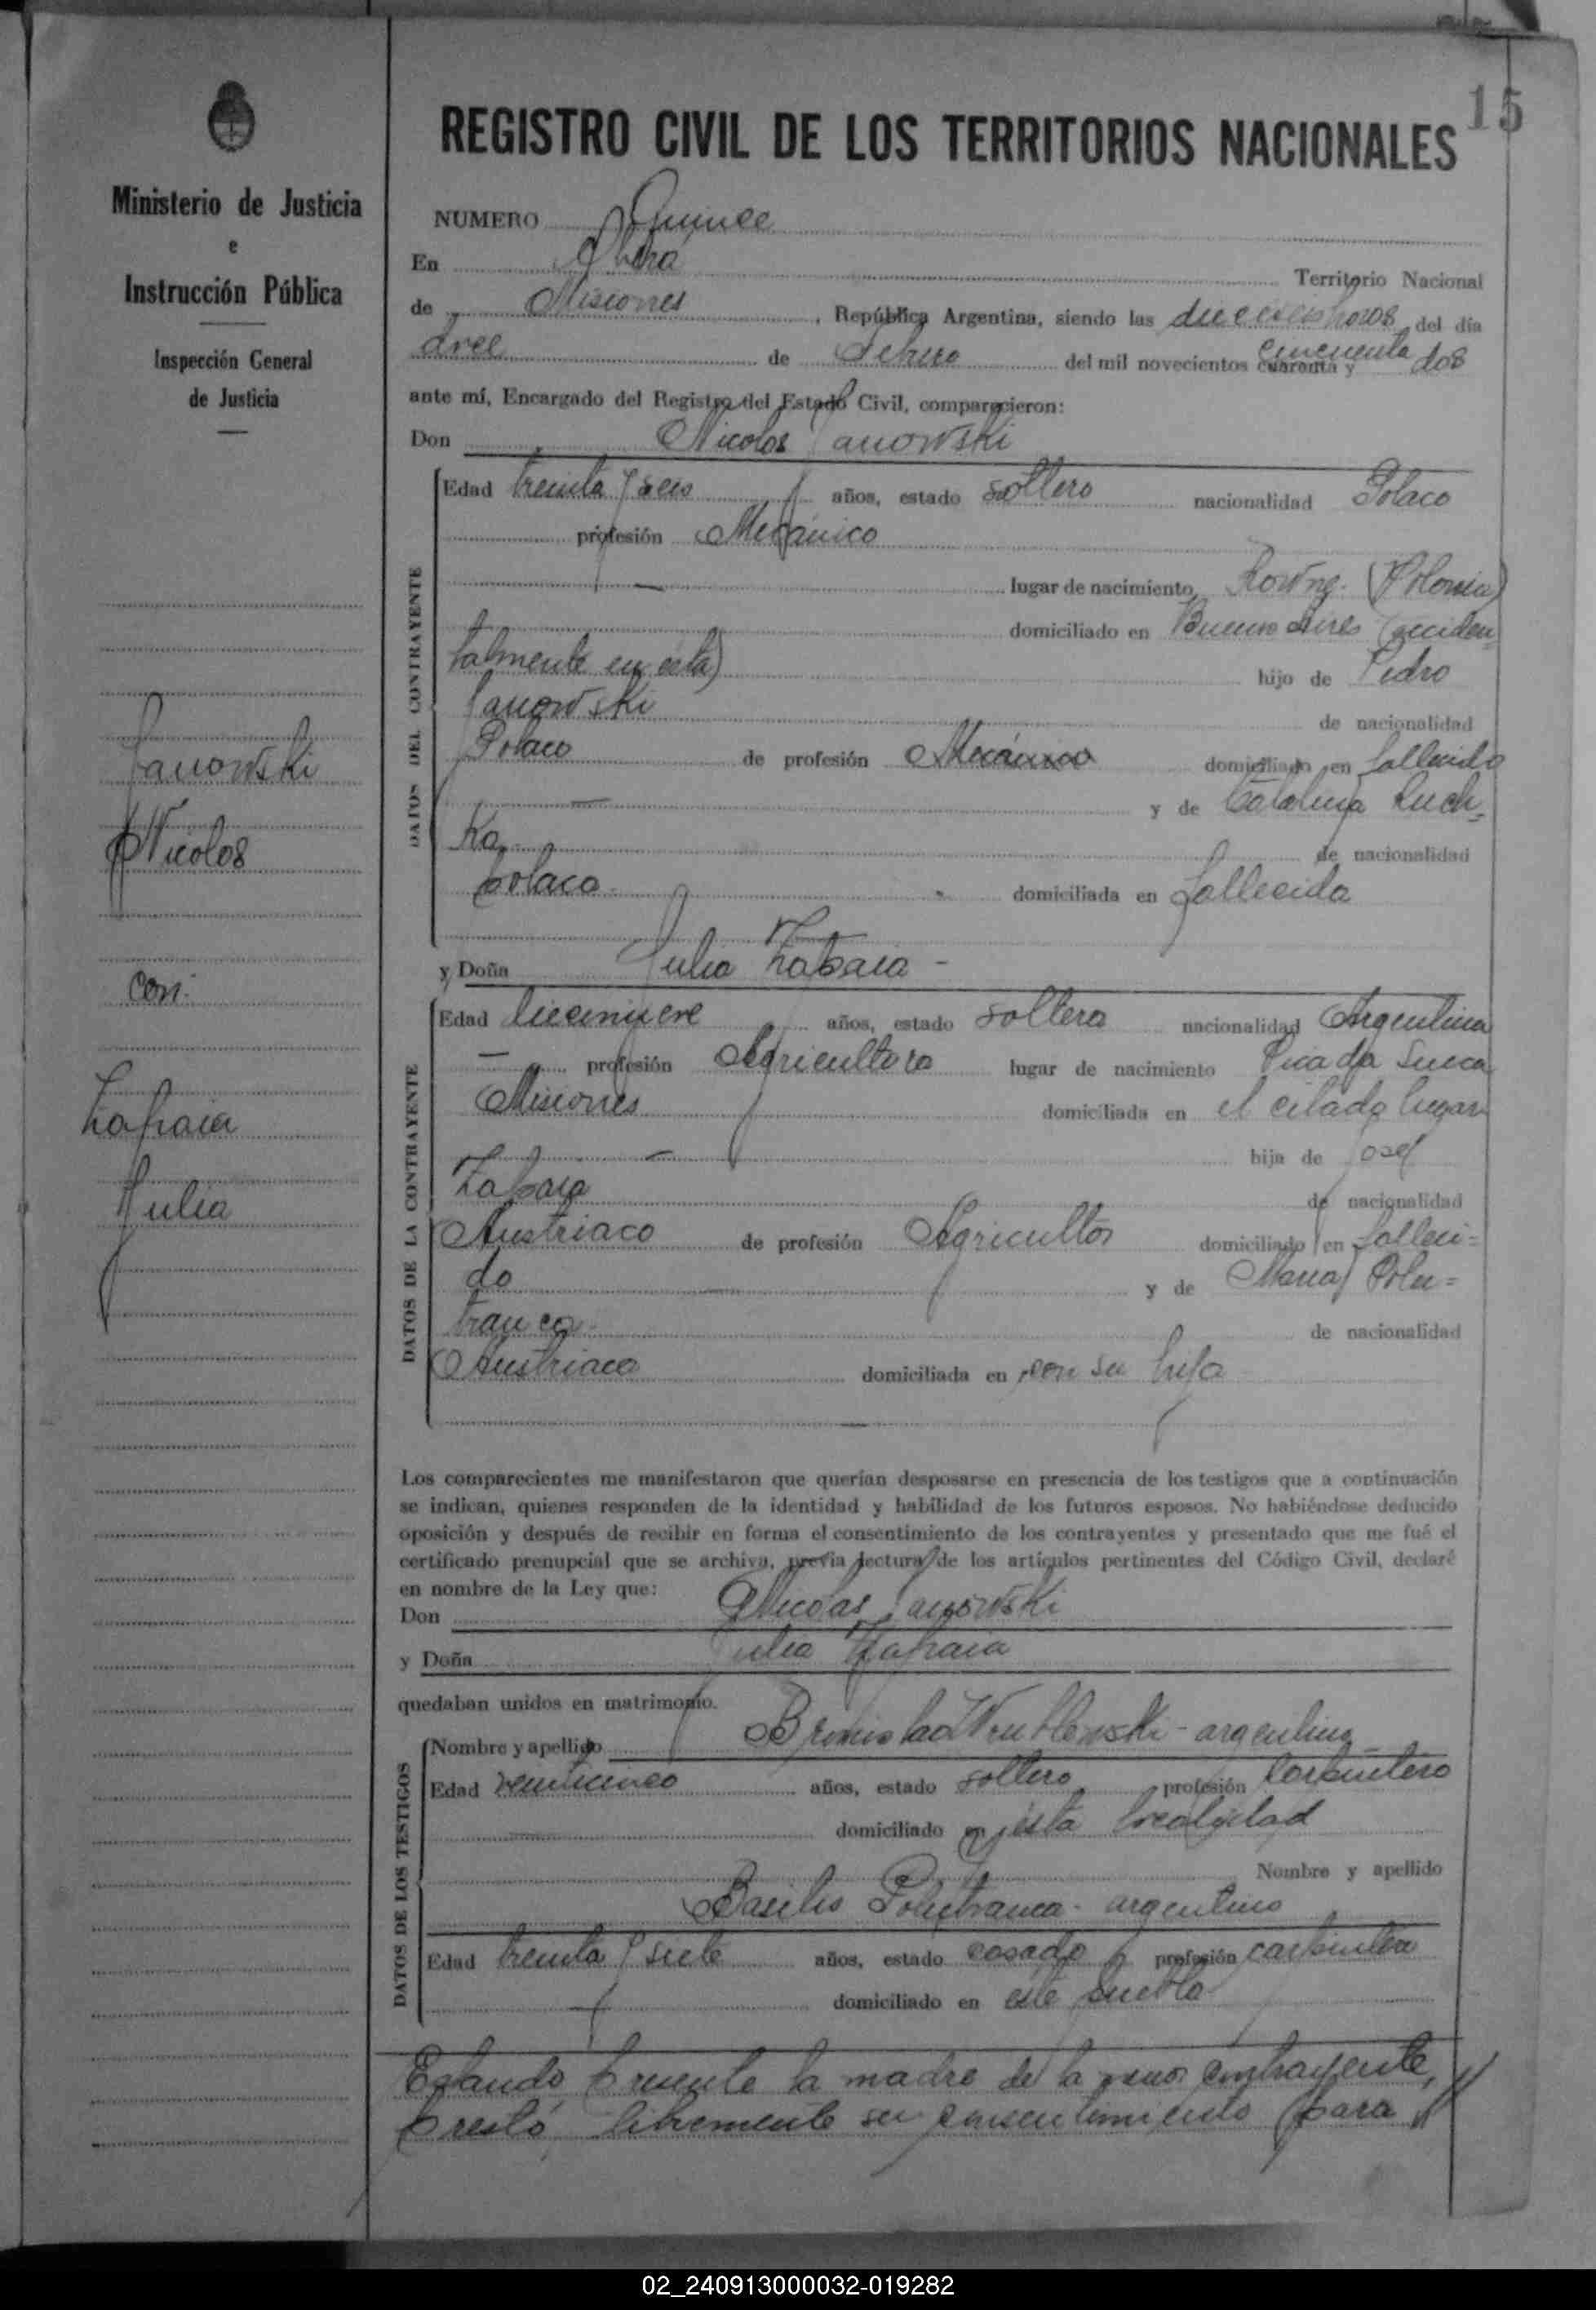 15
Ministerio de Justicia
e
Instrucción Pública
Inspección General
de Justicia
Janowski
Nicolos
con:
Zapaia
Julia
REGISTRO CIVIL DE LOS TERRITORIOS NACIONALES
NUMERO Quince
En Oberá Territorio Nacional
de Misiones, República Argentina, siendo las dieciseis horas del día
doce de Febrero del mil novecientos cuarenta y cincuenta dos
ante mí, Encargado del Registro del Estado Civil, comparecieron:
Don Nicolos Janowski
DATOS DEL CONTRAYENTE
Edad treinta y seis años, estado soltero nacionalidad Polaco
profesión Mecánico
lugar de nacimiento Rowne. (Polonia)
domiciliado en Buenos Aires (acciden=
talmente en ésta) hijo de Pedro
Janowski de nacionalidad
Polaco de profesión Mecánico domiciliado en fallecido
y de Catalina Ruch=
Ka de nacionalidad
polaca domiciliada en fallecida
y Doña Julia Zapaia -
DATOS DE LA CONTRAYENTE
Edad diecinueve años, estado soltera nacionalidad Argentina
profesión Agricultora lugar de nacimiento Picada Sueca
Misiones domiciliada en el citado lugar
hija de José
Zapaia de nacionalidad
Austriaco de profesión Agricultor domiciliado en falleci=
do y de Maria Polu=
tranca de nacionalidad
Austriaca domiciliada en con su hija
Los comparecientes me manifestaron que querían desposarse en presencia de los testigos que a continuación
se indican, quienes responden de la identidad y habilidad de los futuros esposos. No habiéndose deducido
oposición y después de recibir en forma el consentimiento de los contrayentes y presentado que me fué el
certificado prenupcial que se archiva, previa lectura de los artículos pertinentes del Código Civil, declaré
en nombre de la Ley que:
Don Nicolas Janowski
y Doña Julia Zapaia
quedaban unidos en matrimonio.
DATOS DE LOS TESTIGOS
Nombre y apellido Bronislao Wrublewski - argentino
Edad veinticinco años, estado soltero profesión carpintero
domiciliado en ésta localidad
Nombre y apellido
Basilio Polutranca - argentino
Edad treinta y siete años, estado casado profesión carpintero
domiciliado en éste pueblo
Estando presente la madre de la menor contrayente,
prestó libremente su consentimiento para //
02_240913000032-019282